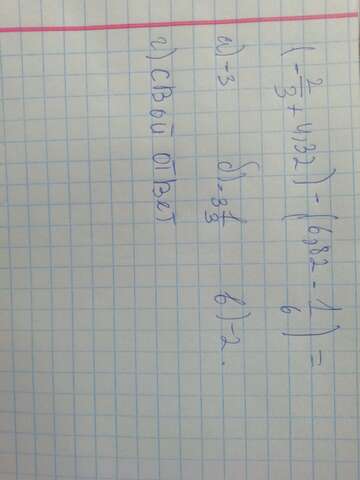 (-2/3 + 4,32) - (6,82 - 1/6) =
а) -3 б) -3 1/3 в) -2.
г) свой ответ